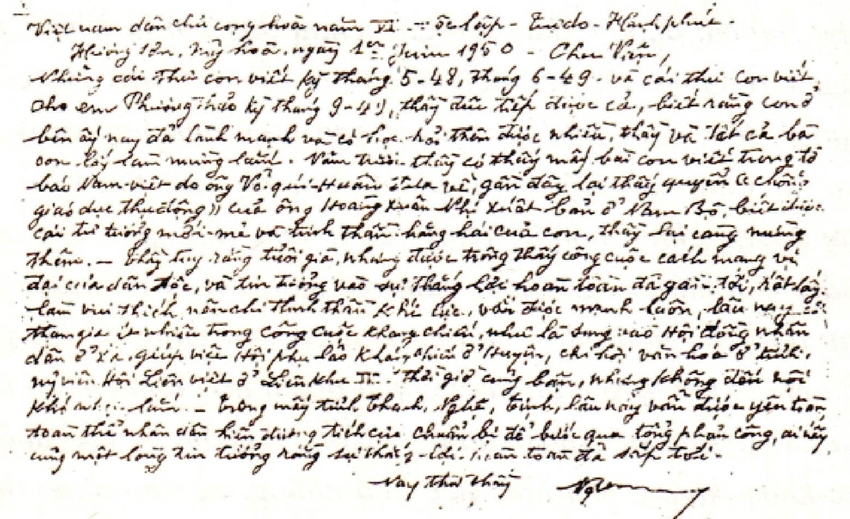 Việt nam dân chủ cộng hoà năm VI - Độc lập - Tự do - Hạnh phúc -
Hương Sơn, Mỹ hoà, ngày 1er Juin 1950 - Cho Viện,
Những cái thư con viết kỳ tháng 5-48, tháng 6-49 - và cái thư con viết
cho em Phương Thảo kỳ tháng 9-49, thầy đều tiếp được cả, biết rằng con ở
bên ấy nay đã lành mạnh và có học hỏi thêm được nhiều, thầy và tất cả bà
con lấy làm mừng lắm. Năm trước thầy có thấy mấy bài con viết trong tờ
báo Nam-việt do ông Võ quí-Huân đưa về, gần đây lại thấy quyển « chống
giáo dục thụ động » của ông Hoàng Xuân Nhị xuất bản ở Nam Bộ, biết được
cái tư tưởng mới-mẻ và tinh thần hăng hái của con, thầy lại càng mừng
thêm. - Thầy tuy rằng tuổi già, nhưng được trông thấy công cuộc cách mạng vĩ
đại của dân tộc, và tin tưởng vào sự thắng lợi hoàn toàn đã gần tới, rất lấy
làm vui thích, nên chi tinh thần khí lực vẫn được mạnh luôn, lâu nay có
tham gia ít nhiều trong công cuộc kháng chiến, như là sung vào Hội đồng nhân
dân ở Xã, giúp việc Hội phụ lão kháng chiến ở Huyện, chi hội văn hoá ở tỉnh,
uỷ viên Hội Liên việt ở Liên khu IV. Thời giờ cũng bận, nhưng không đến nỗi
khó nhọc lắm. - Trong mấy tỉnh Thanh, Nghệ, Tĩnh, lâu nay vẫn được yên toàn,
toàn thể nhân dân hiện đương tích cực chuẩn bị để bước qua tổng phản công, ai nấy
cũng một lòng tin tưởng rằng sự thắng lợi hoàn toàn đã sắp tới.
Nay thư thầy